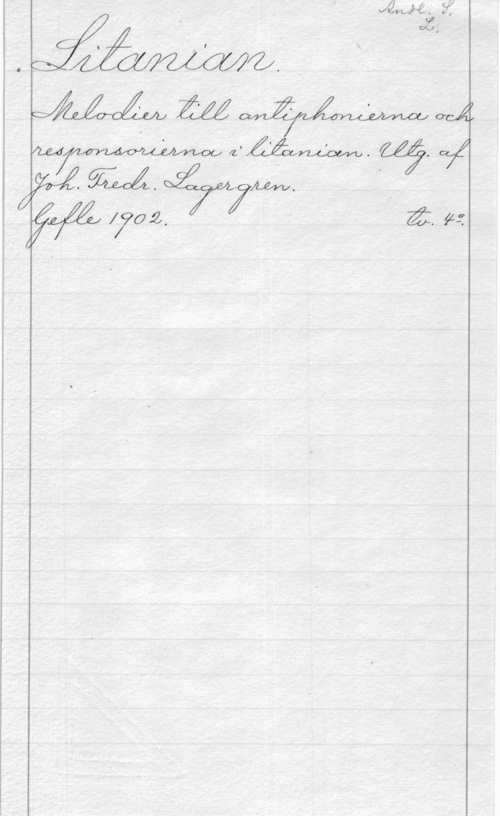 Andl. S.
L.
Litanian.
Melodier till antiphonierna och
responsorierna i litanian. Utg. af
Joh. Fredr. Lagergren.
Gefle 1902. tv. 4º.